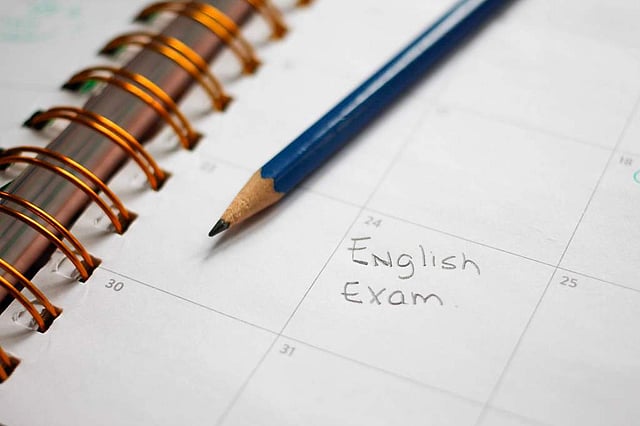 18
23
24
English
Exam
25
30
31